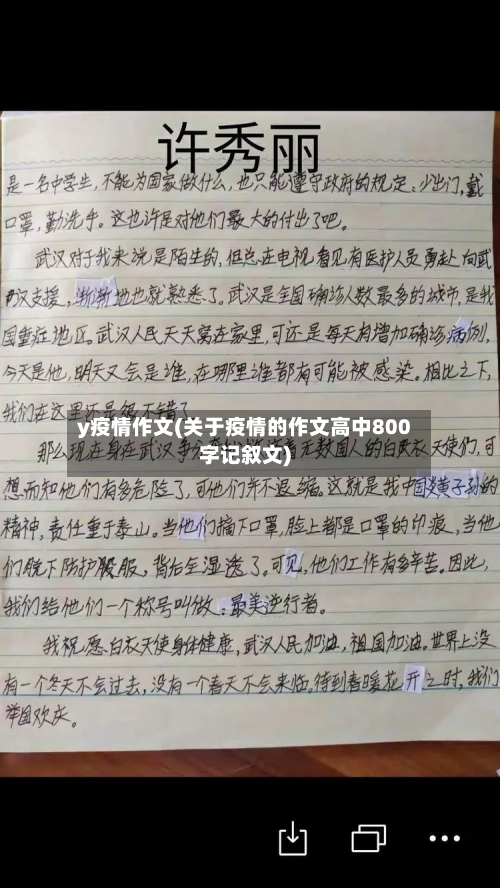 许秀丽
是一名中学生,不能为国家做什么,也只能遵守政府的规定:少出门,戴
口罩,勤洗手。这也许是对他们最大的付出了吧。
武汉对于我来说是陌生的,但总在电视看见有医护人员勇赴向武
汉支援,渐渐地也就熟悉了。武汉是全国确诊人数最多的城市,是我
国重症地区。武汉人民天天窝在家里,可还是每天有增加确诊病例,
今天是他,明天又会是谁,在哪里谁都有可能被感染。相比之下,
我们在这里还是很不错了
y疫情作文(关于疫情的作文高中800
字记叙文)
那么现在身在武汉
无数国人的白衣天使们,可
想而知他们有多危险了,可他们并不退缩。这就是我中国炎黄子孙的
精神,责任重于泰山。当他们摘下口罩,脸上都是口罩的印痕,当他
们脱下防护服,背后全湿透了。可见,他们工作有多辛苦。因此,
我们给他们一个称号叫做:最美逆行者。
我祝愿白衣天使身体健康,武汉人民加油,祖国加油。世界上没
有一个冬天不会过去,没有一个春天不会来临。待到春暖花开之时,我们
举国欢庆。